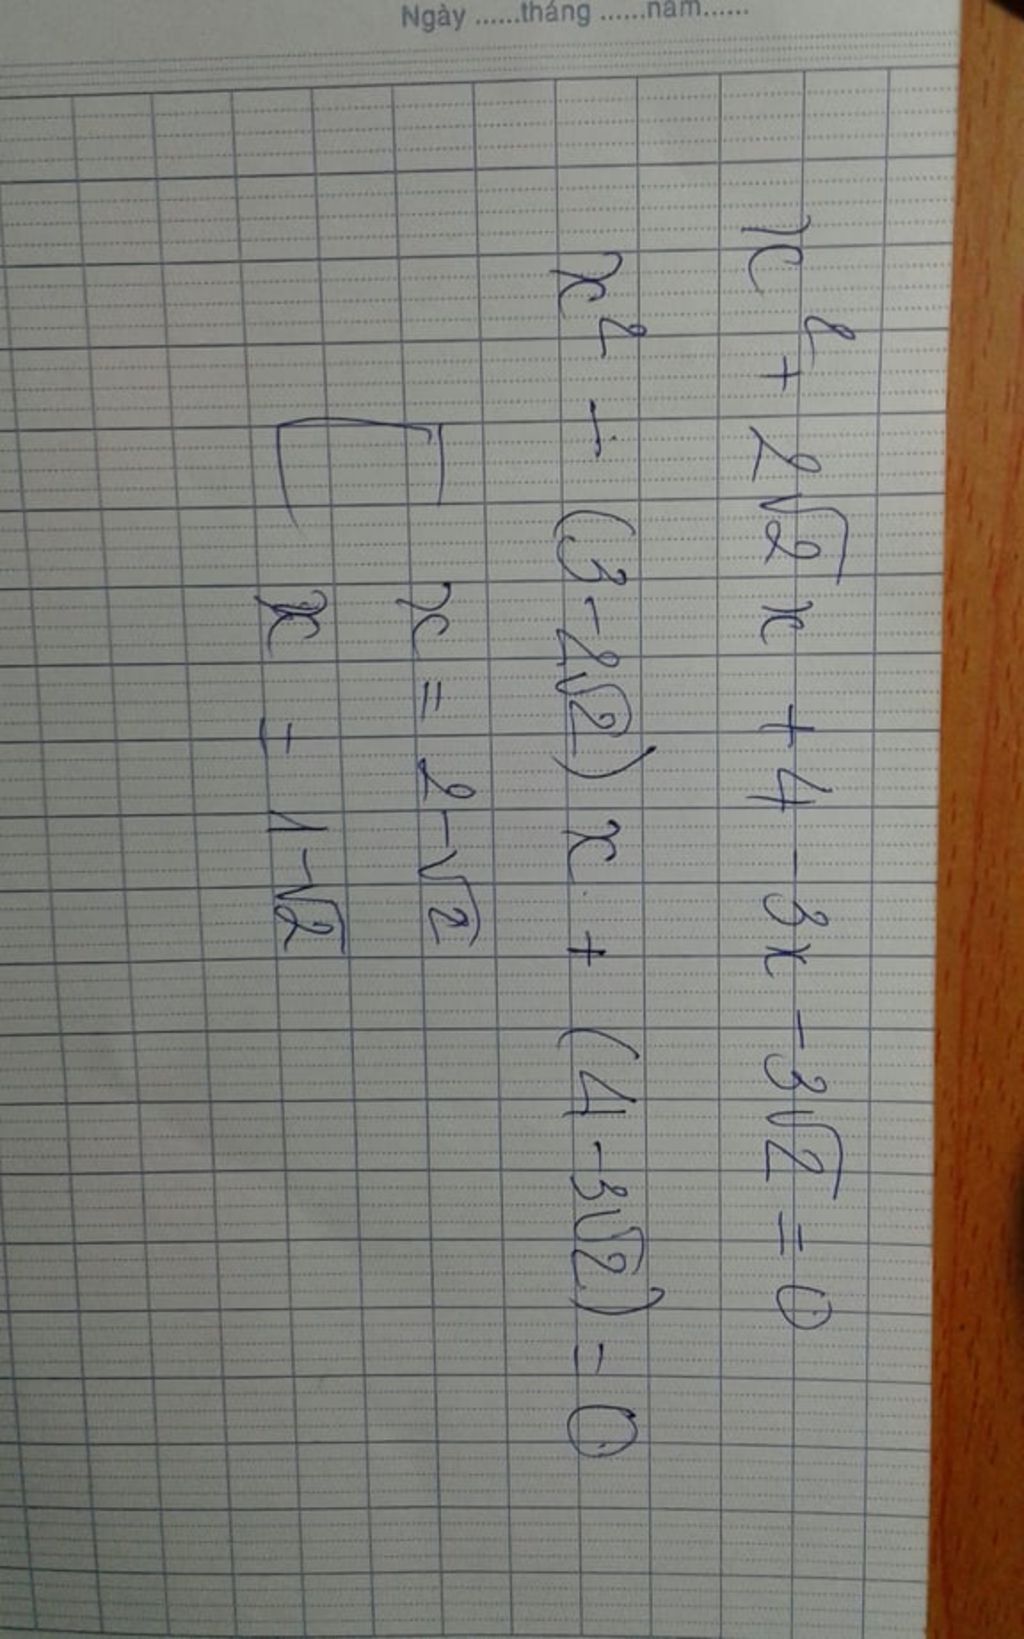 Ngày ......tháng ......năm......
x² + 2√2 x + 4 - 3x - 3√2 = 0
x² - (3 - 2√2) x + (4 - 3√2) = 0
[ x = 2 - √2
x = 1 - √2